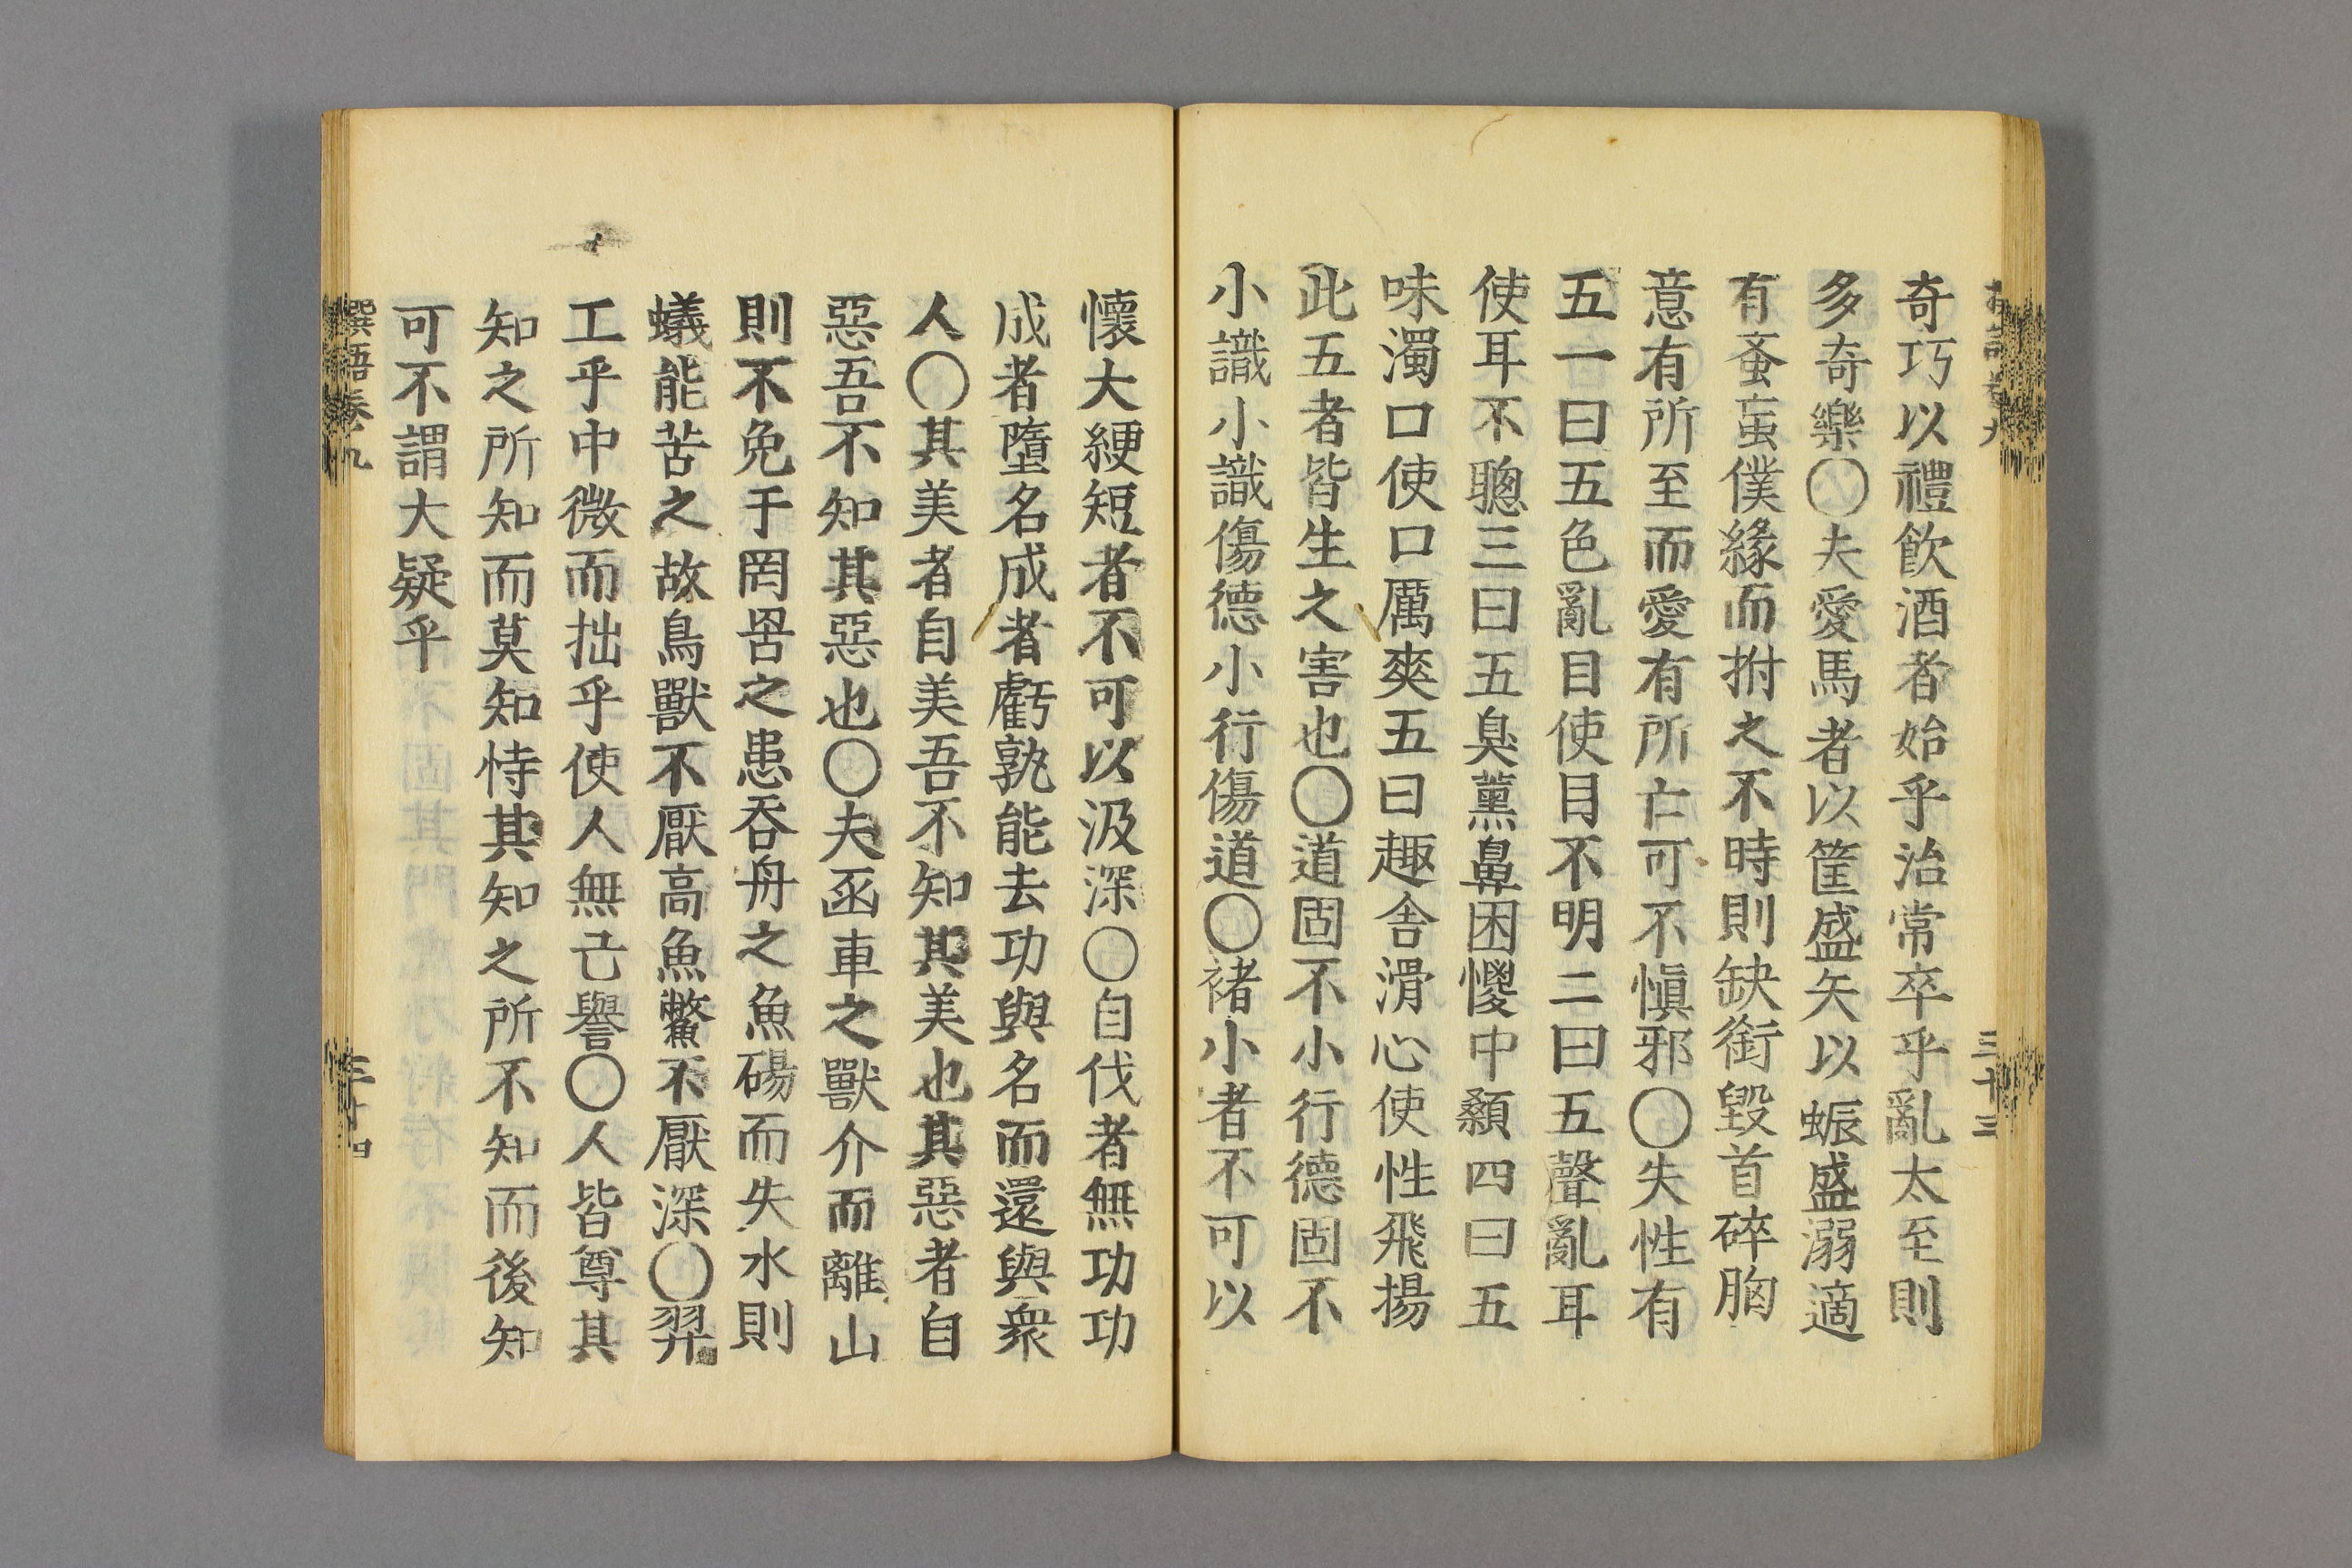 奇巧以禮飲酒者始乎治常卒乎亂太至則
多奇樂〇夫愛馬者以筐盛矢以蜄盛溺適
有蚤䖟僕緣而拊之不時則缺銜毀首碎胸
意有所至而愛有所亡可不慎邪〇失性有
五一曰五色亂目使目不明二曰五聲亂耳
使耳不聰三曰五臭薰鼻困惾中顙四曰五
味濁口使口厲爽五曰趣舍滑心使性飛揚
此五者皆生之害也〇道固不小行德固不
小識小識傷德小行傷道〇褚小者不可以
三十三
懷大綆短者不可以汲深〇自伐者無功功
成者墮名成者虧孰能去功與名而還與衆
人〇其美者自美吾不知其美也其惡者自
惡吾不知其惡也〇夫函車之獸介而離山
則不免于罔罟之患吞舟之魚碭而失水則
蟻能苦之故鳥獸不厭高魚鱉不厭深〇羿
工乎中微而拙乎使人無己譽〇人皆尊其
知之所知而莫知恃其知之所不知而後知
可不謂大疑乎
譔語卷九
三十四